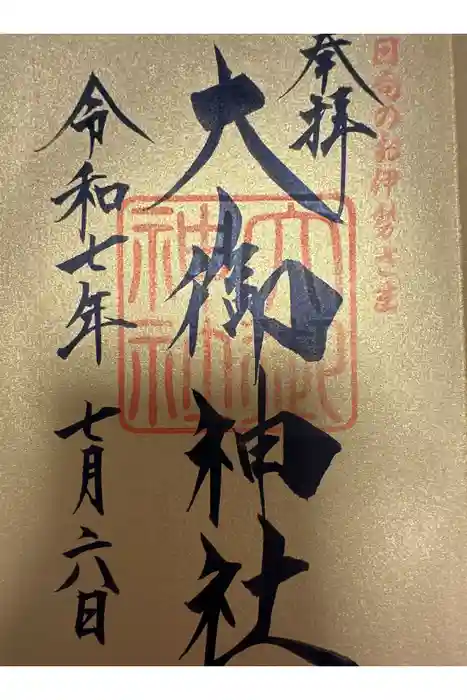 日向のお伊勢さま
奉拝
大御神社
大御神社
令和七年
七月六日